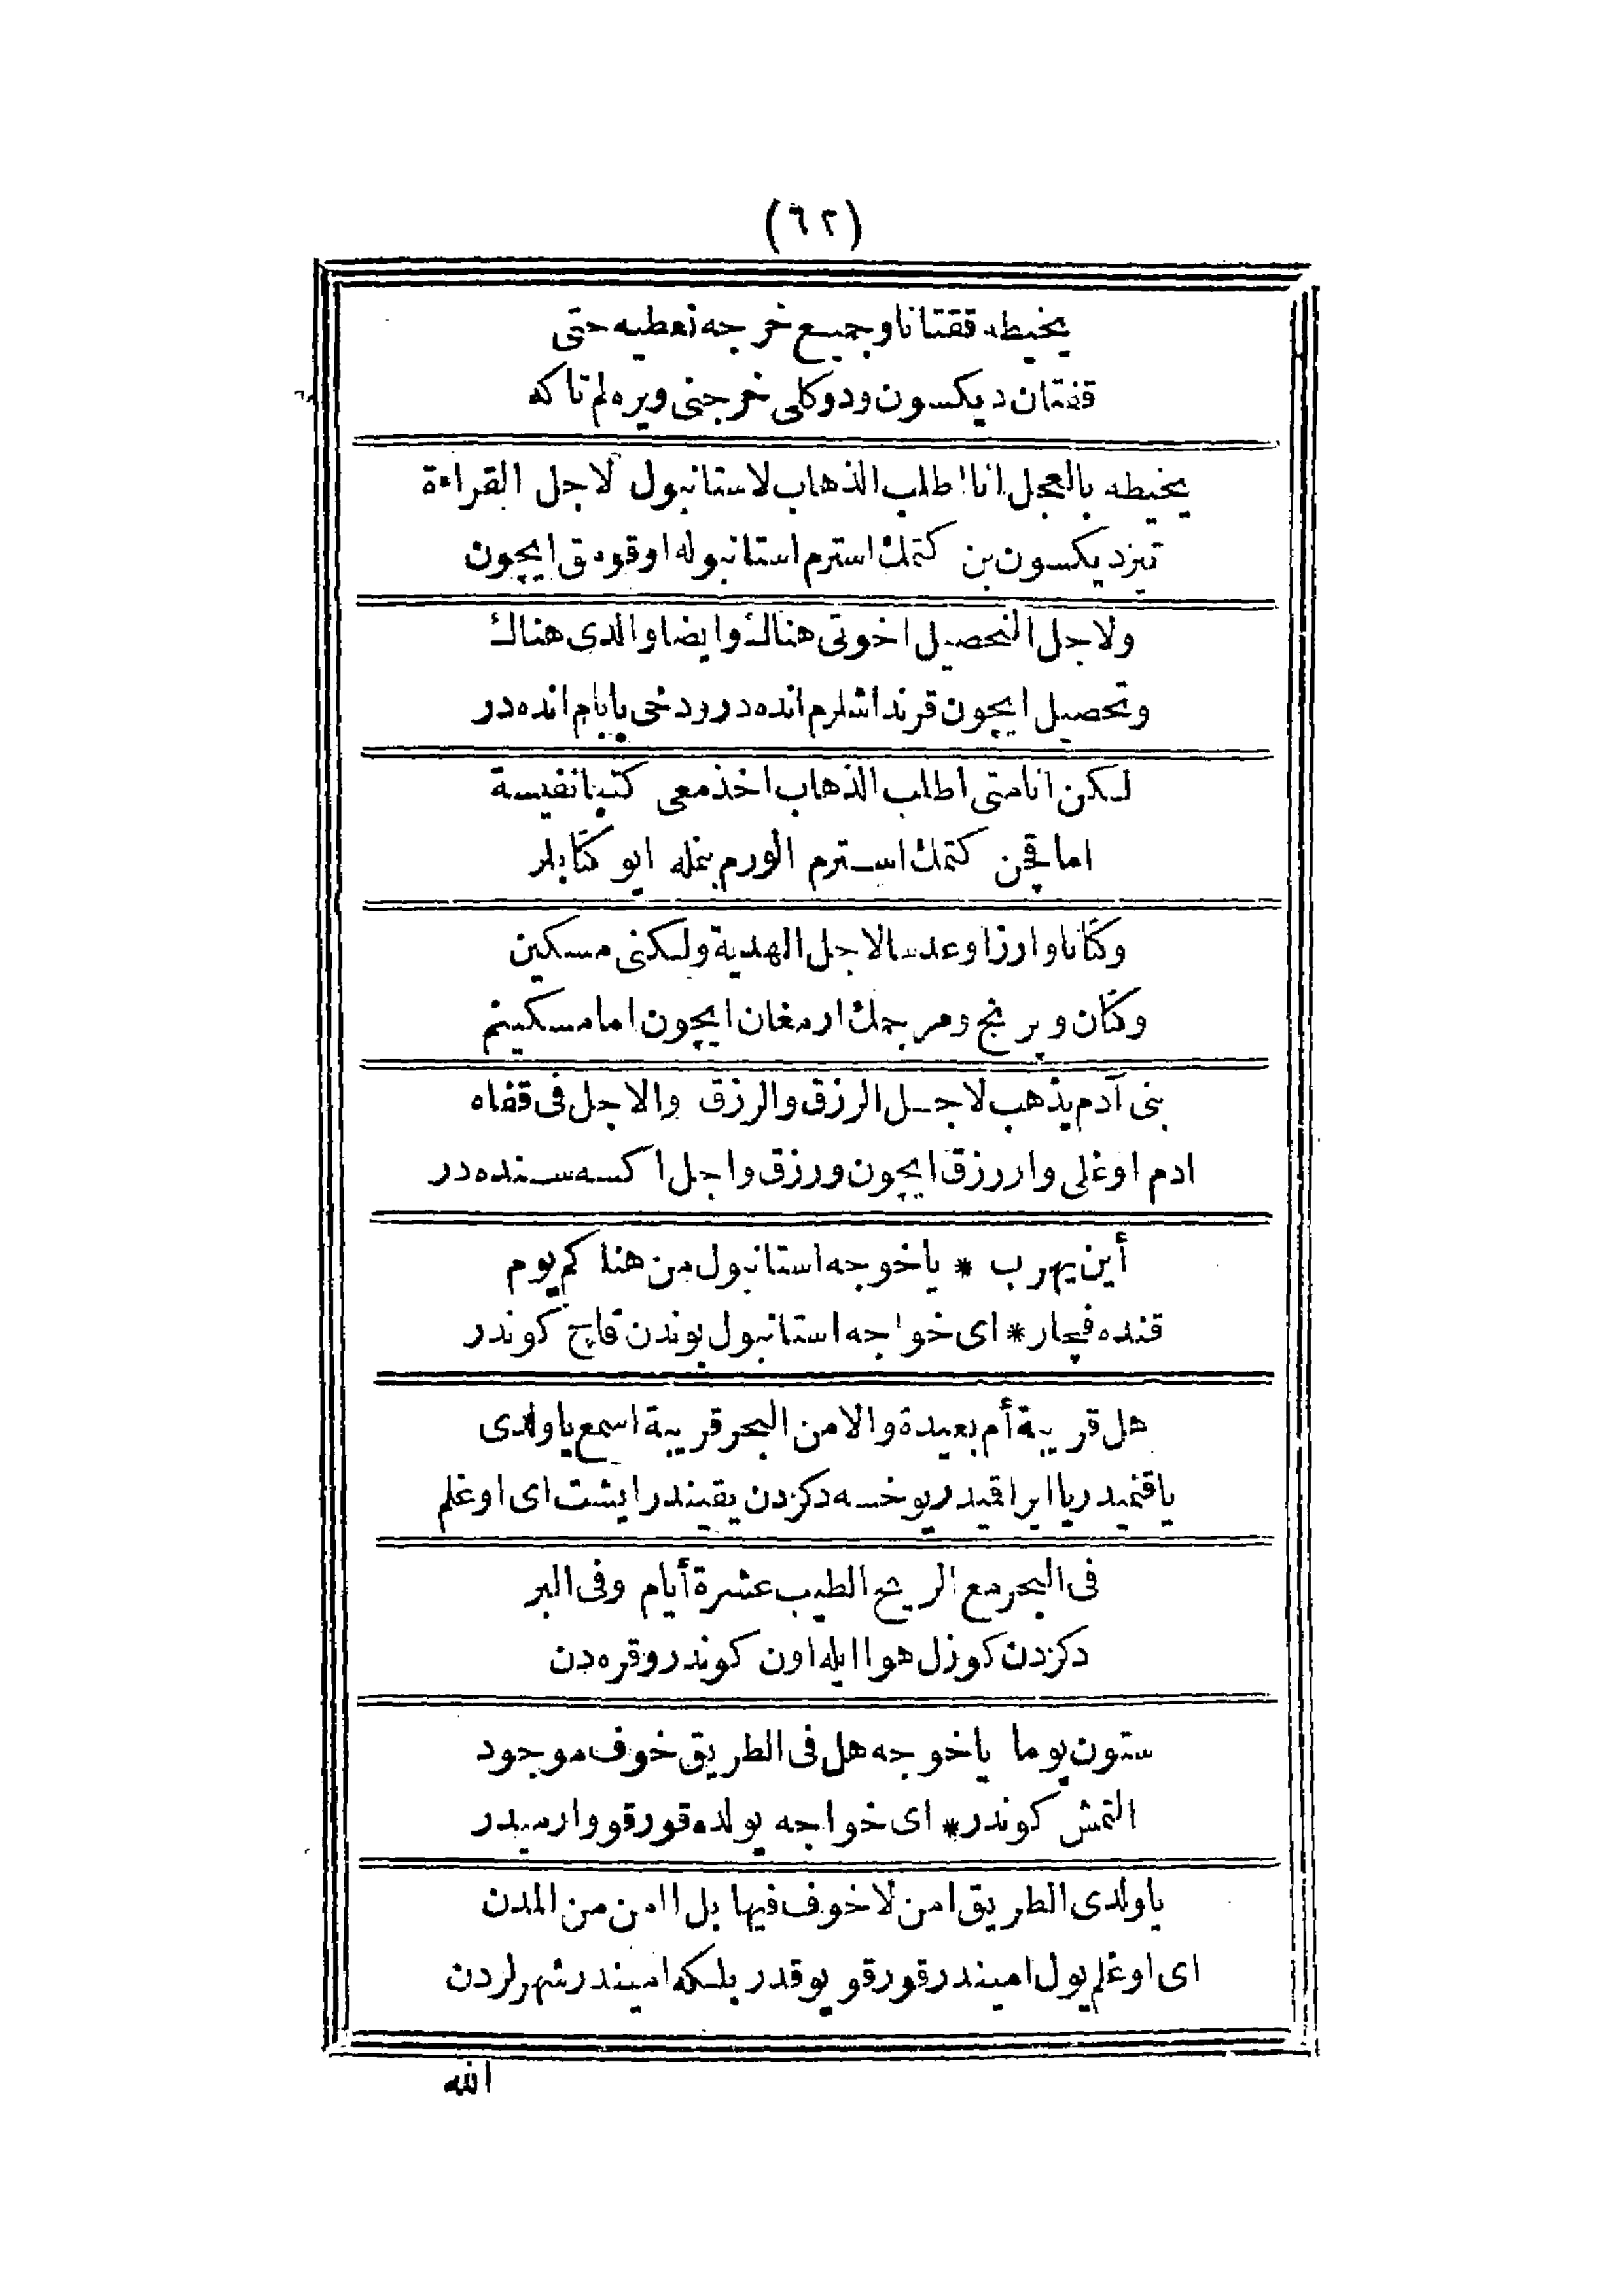 (٦٢)
يخيطه قفتانا وجميع خرجه نعطيه حتى
قفتان ديكسون ودوكلى خرجنى ويره لم تا كه
يخيطه بالعجل انا اطلب الذهاب لاستانبول لاجل القراءة
تيز ديكسون بن كتمك استرم استانبوله اوقومق ايچون
ولاجل التحصيل اخوتى هناك وايضا والدى هناك
وتحصيل ايچون قرنداشلرم انده در ودخى بابام انده در
لكن انا متى اطلب الذهاب اخذ معى كتبا نفيسة
اما قچن كتمك استرم الورم بنمله ايو كتابلر
وكتانا وارزا وعدسا لاجل الهدية ولكنى مسكين
وكتان وبرنج ومرجمك ارمغان ايچون اما مسكينم
بنى آدم يذهب لاجل الرزق والرزق والاجل فى قفاه
ادم اوغلى وار رزق ايچون ورزق واجل اكسه سنده در
أين يهرب * ياخوجه استانبول من هنا كم يوم
قنده قچار * اى خواجه استانبول بوندن قاچ كوندر
هل قريبة أم بعيدة والا من البحر قريبة اسمع ياولدى
ياقنميدر يا ايراقيدر يوخسه دكزدن يقيندر ايشت اى اوغلم
فى البحر مع الريح الطيب عشرة أيام وفى البر
دكزدن كوزل هوا ايله اون كوندر وقره دن
ستون يوما ياخوجه هل فى الطريق خوف موجود
التمش كوندر * اى خواجه يولده قورقو وارميدر
ياولدى الطريق امن لاخوف فيها بل اامن من المدن
اى اوغلم يول اميندر قورقو يوقدر بلكه اميندر شهرلردن
الله